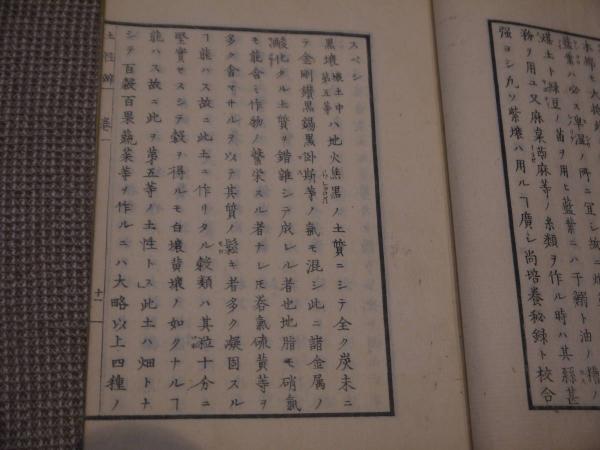 本郷モ大抵
藍葉ハ必ス卑濕ノ所ニ宜シ故ニ
煤土ト緑豆ノ苗ヲ用ヒ藍葉ニハ干鰯ト油ノ糟ノ
粉ヲ用ユ又麻枲苘麻等ノ糸類ヲ作ル時ハ其繇甚
強ヨシ凡ソ紫壤ハ用ルヿ廣シ尚培養秘録ト校合
スベシ
黒壤 壤土中ノ第五等 ハ地火焦黒ノ土質ニシテ全ク炭末ニ
テ金剛鑽黒錫黒卧斯等ノ氣モ混シ此ニ諸金属ノ
酸化タル土質ヲ錯雜シテ成レル者也地脂モ硝氣
モ能含ミ作物ノ繁栄スル者ナレㇳモ呑氣硫黄等ヲ
多ク含マサルヲ以テ其質ノ鬆キ者多ク凝固スル
ヿ能ハス故ニ此土ニ作リタル穀類ハ其位十分ニ
堅實セスシテ穀ヲ得ルモ白壤黄壤ノ如クナルヿ
能ハス故ニ此ヲ第五等ノ土性トス」此土ハ畑トナ
シテ百穀百果蔬菜等ヲ作ルニハ大略以上四種ノ
土性辨 巻一 十一